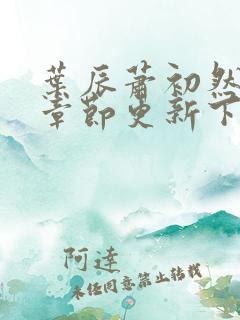 葉辰蕭初然
章節更新下
阿達
未經同意禁止轉載